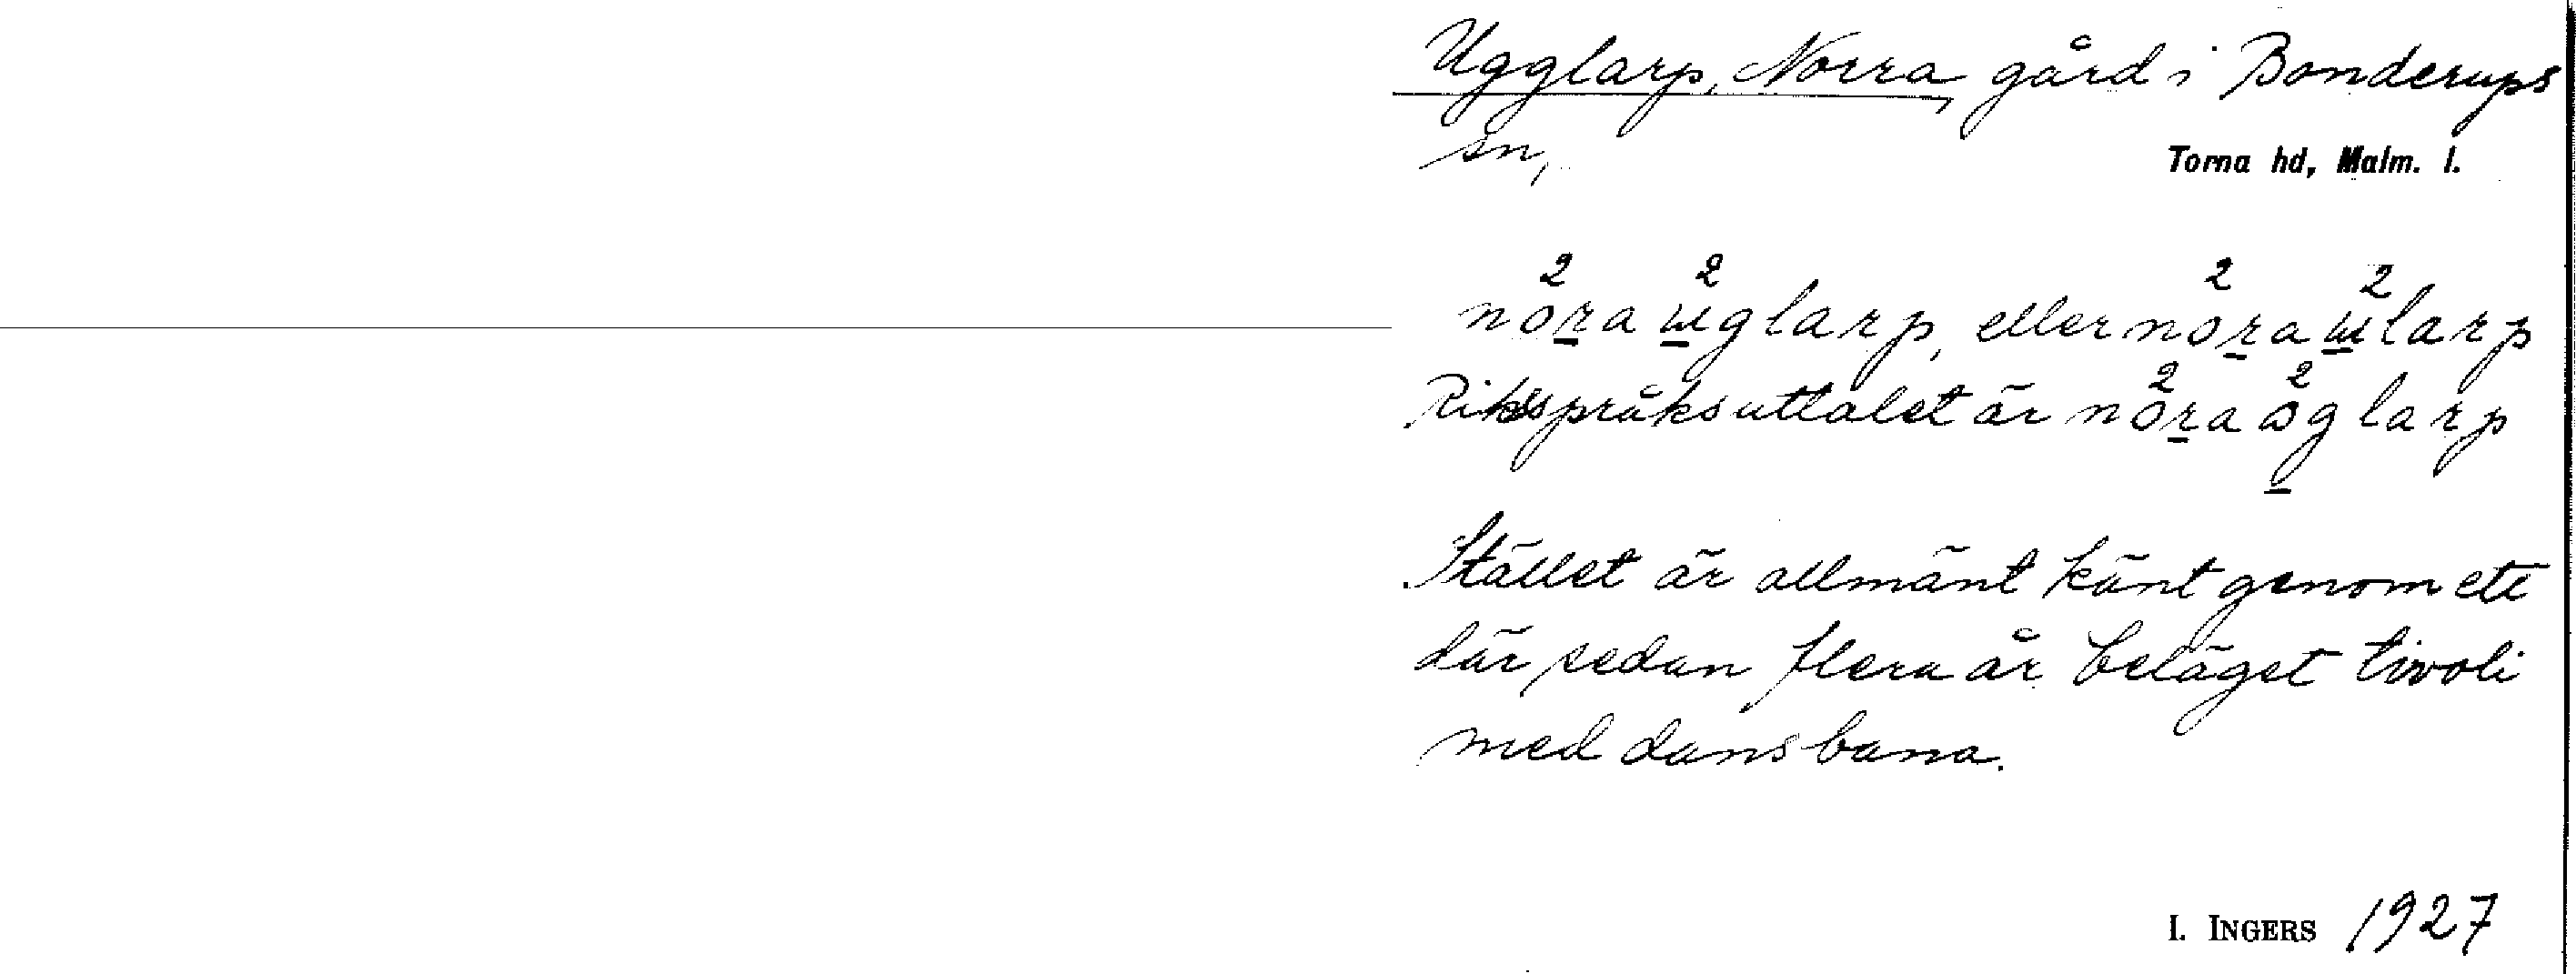 Ugglarp, Norra, gård i Bonderups
sn,
Torna hd, Malm. l.
no²ra ɯ²glarp, eller no²ra ɯ²larp
Riksspråksuttalet är no²ra ω²glarp
Stället är allmänt känt genom ett
där sedan flera år beläget tivoli
med dansbana.
I. INGERS 1927